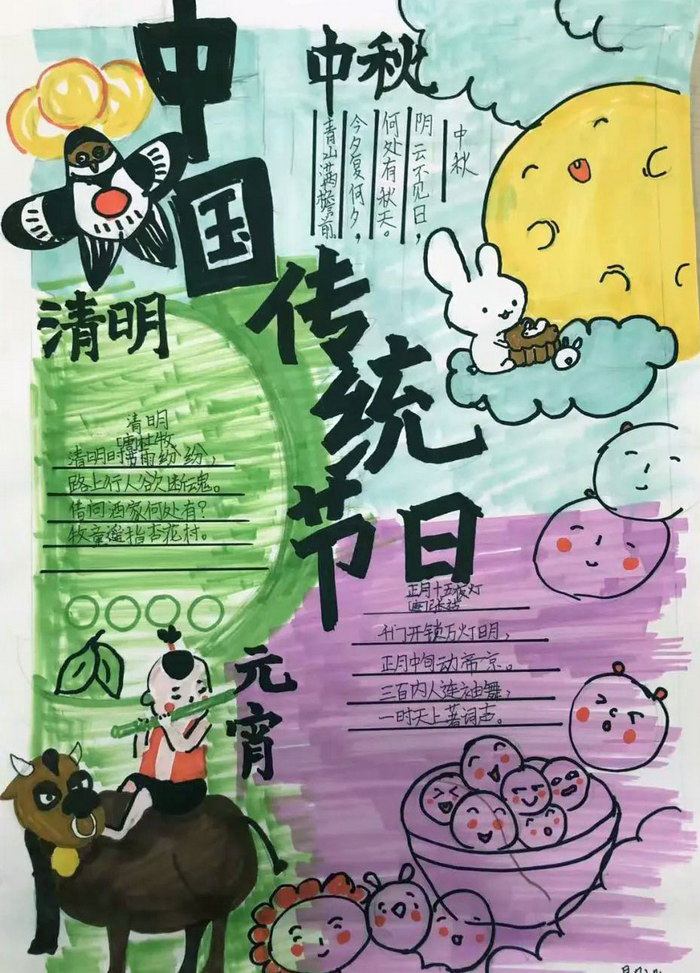 中国
传统
节日
中秋
中秋
阴云不见日，
何处有秋天。
今夕复何夕，
青山满檐前
清明
清明
唐杜牧
清明时节雨纷纷，
路上行人欲断魂。
借问酒家何处有？
牧童遥指杏花村。
元宵
正月十五夜灯
千门开锁万灯明，
正月中旬动帝京。
三百内人连袖舞，
一时天上著词声。